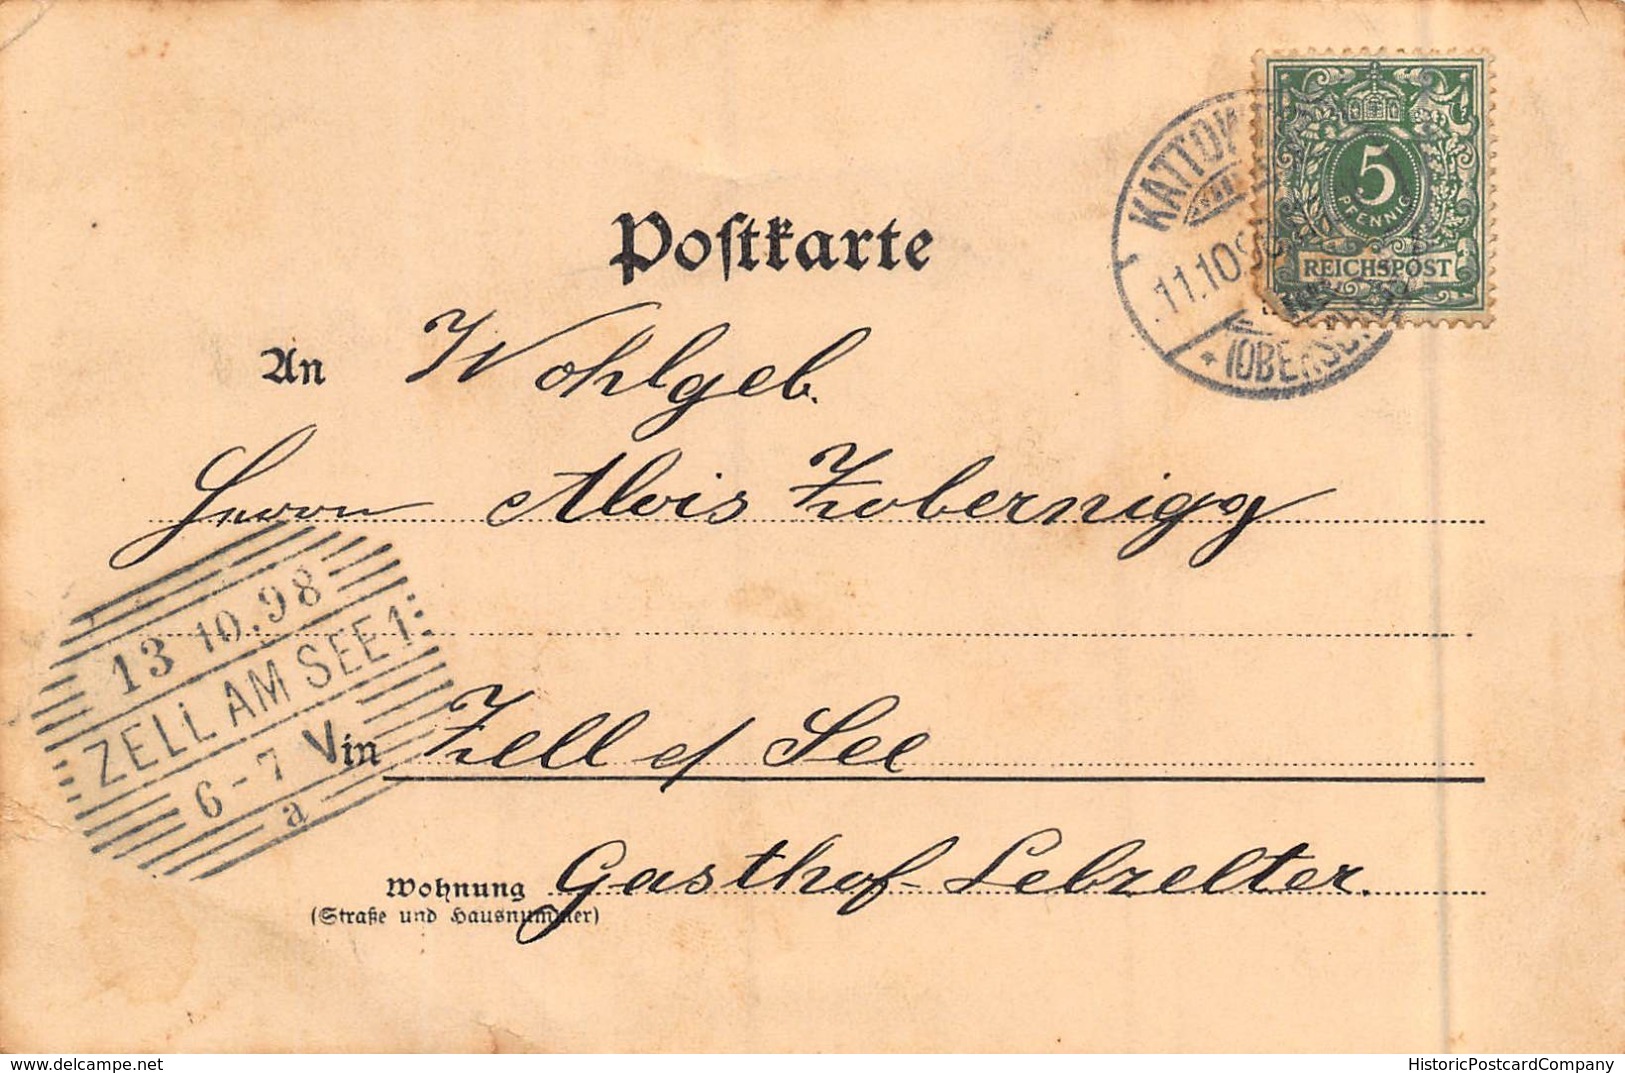 Postkarte
5
PFENNIG
REICHSPOST
KATTOW
11.10.98
(OBERSCHL
An Wohlgeb.
Herrn Alois Zobernigg
13 10.98
ZELL AM SEE 1
6-7 V
a
in Zell a/ See
Wohnung Gasthof Lebzelter.
(Straße und Hausnummer)
delcampe.net
HistoricPostcardCompany